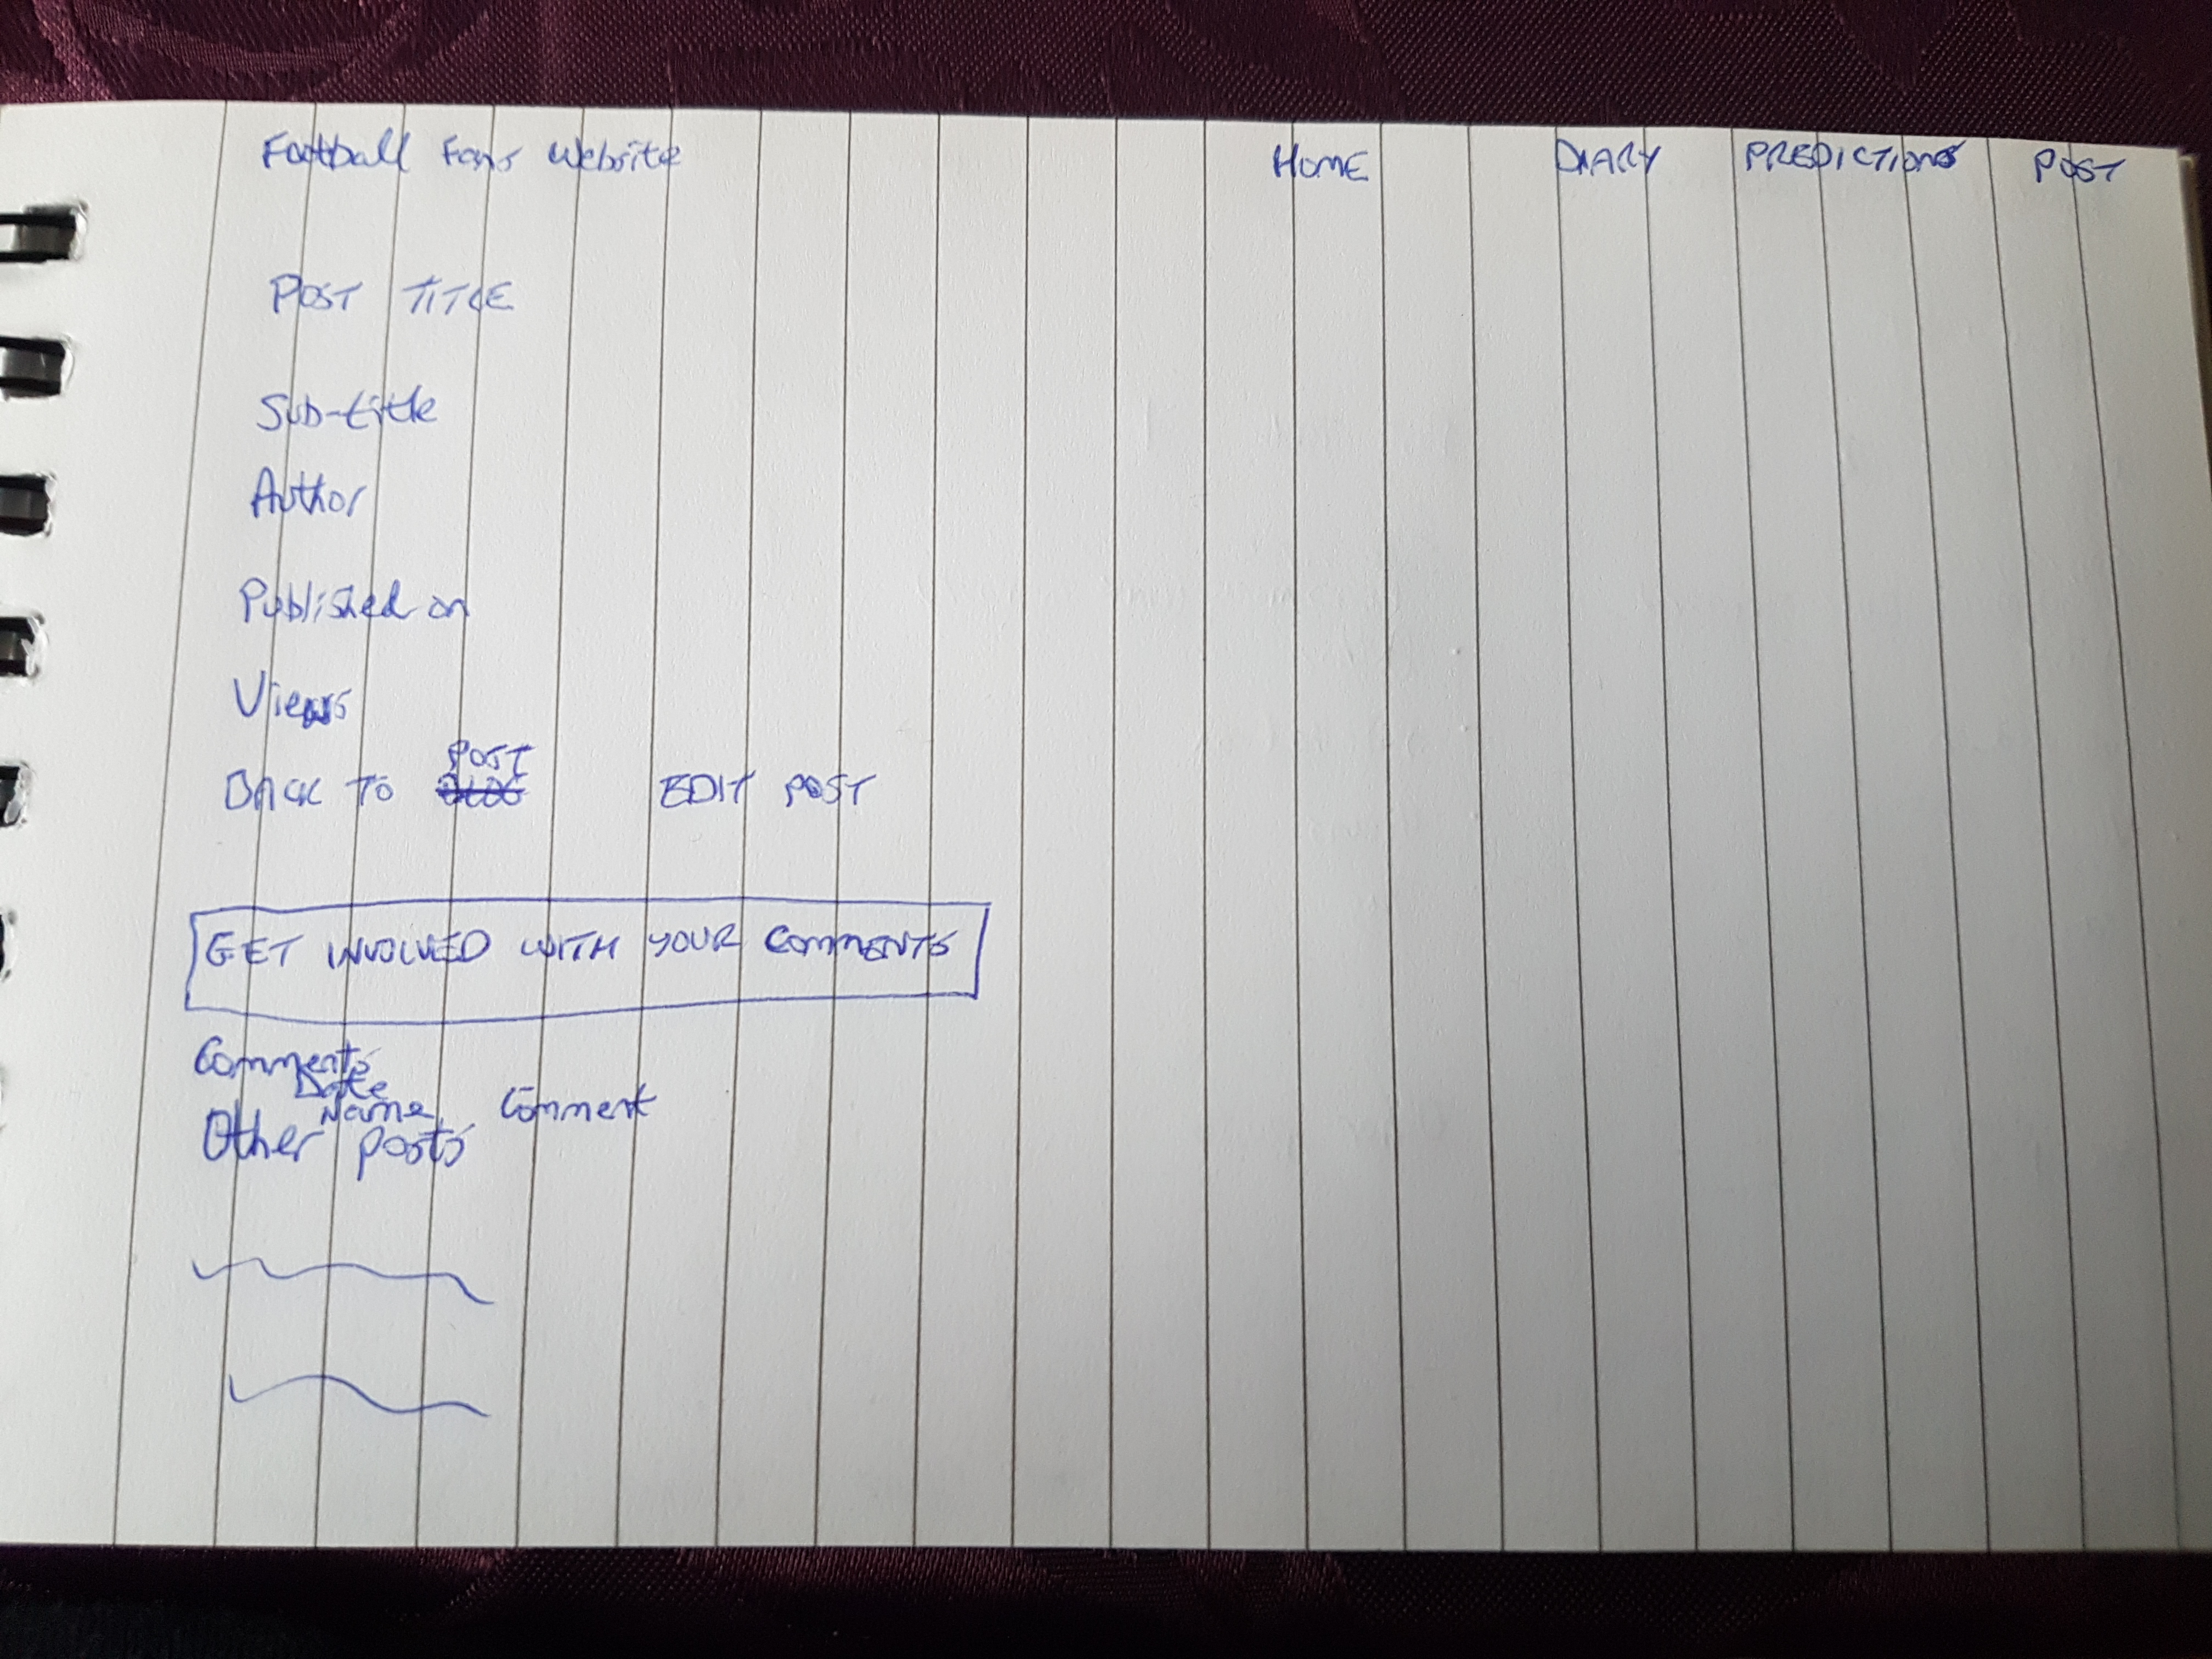 Football Fans Website HOME DIARY PREDICTIONS POST
POST TITLE
Sub-title
Author
Published on
Views
BACK TO POST EDIT POST
GET INVOLVED WITH YOUR COMMENTS
Comments
Date Name Comment
Other Posts